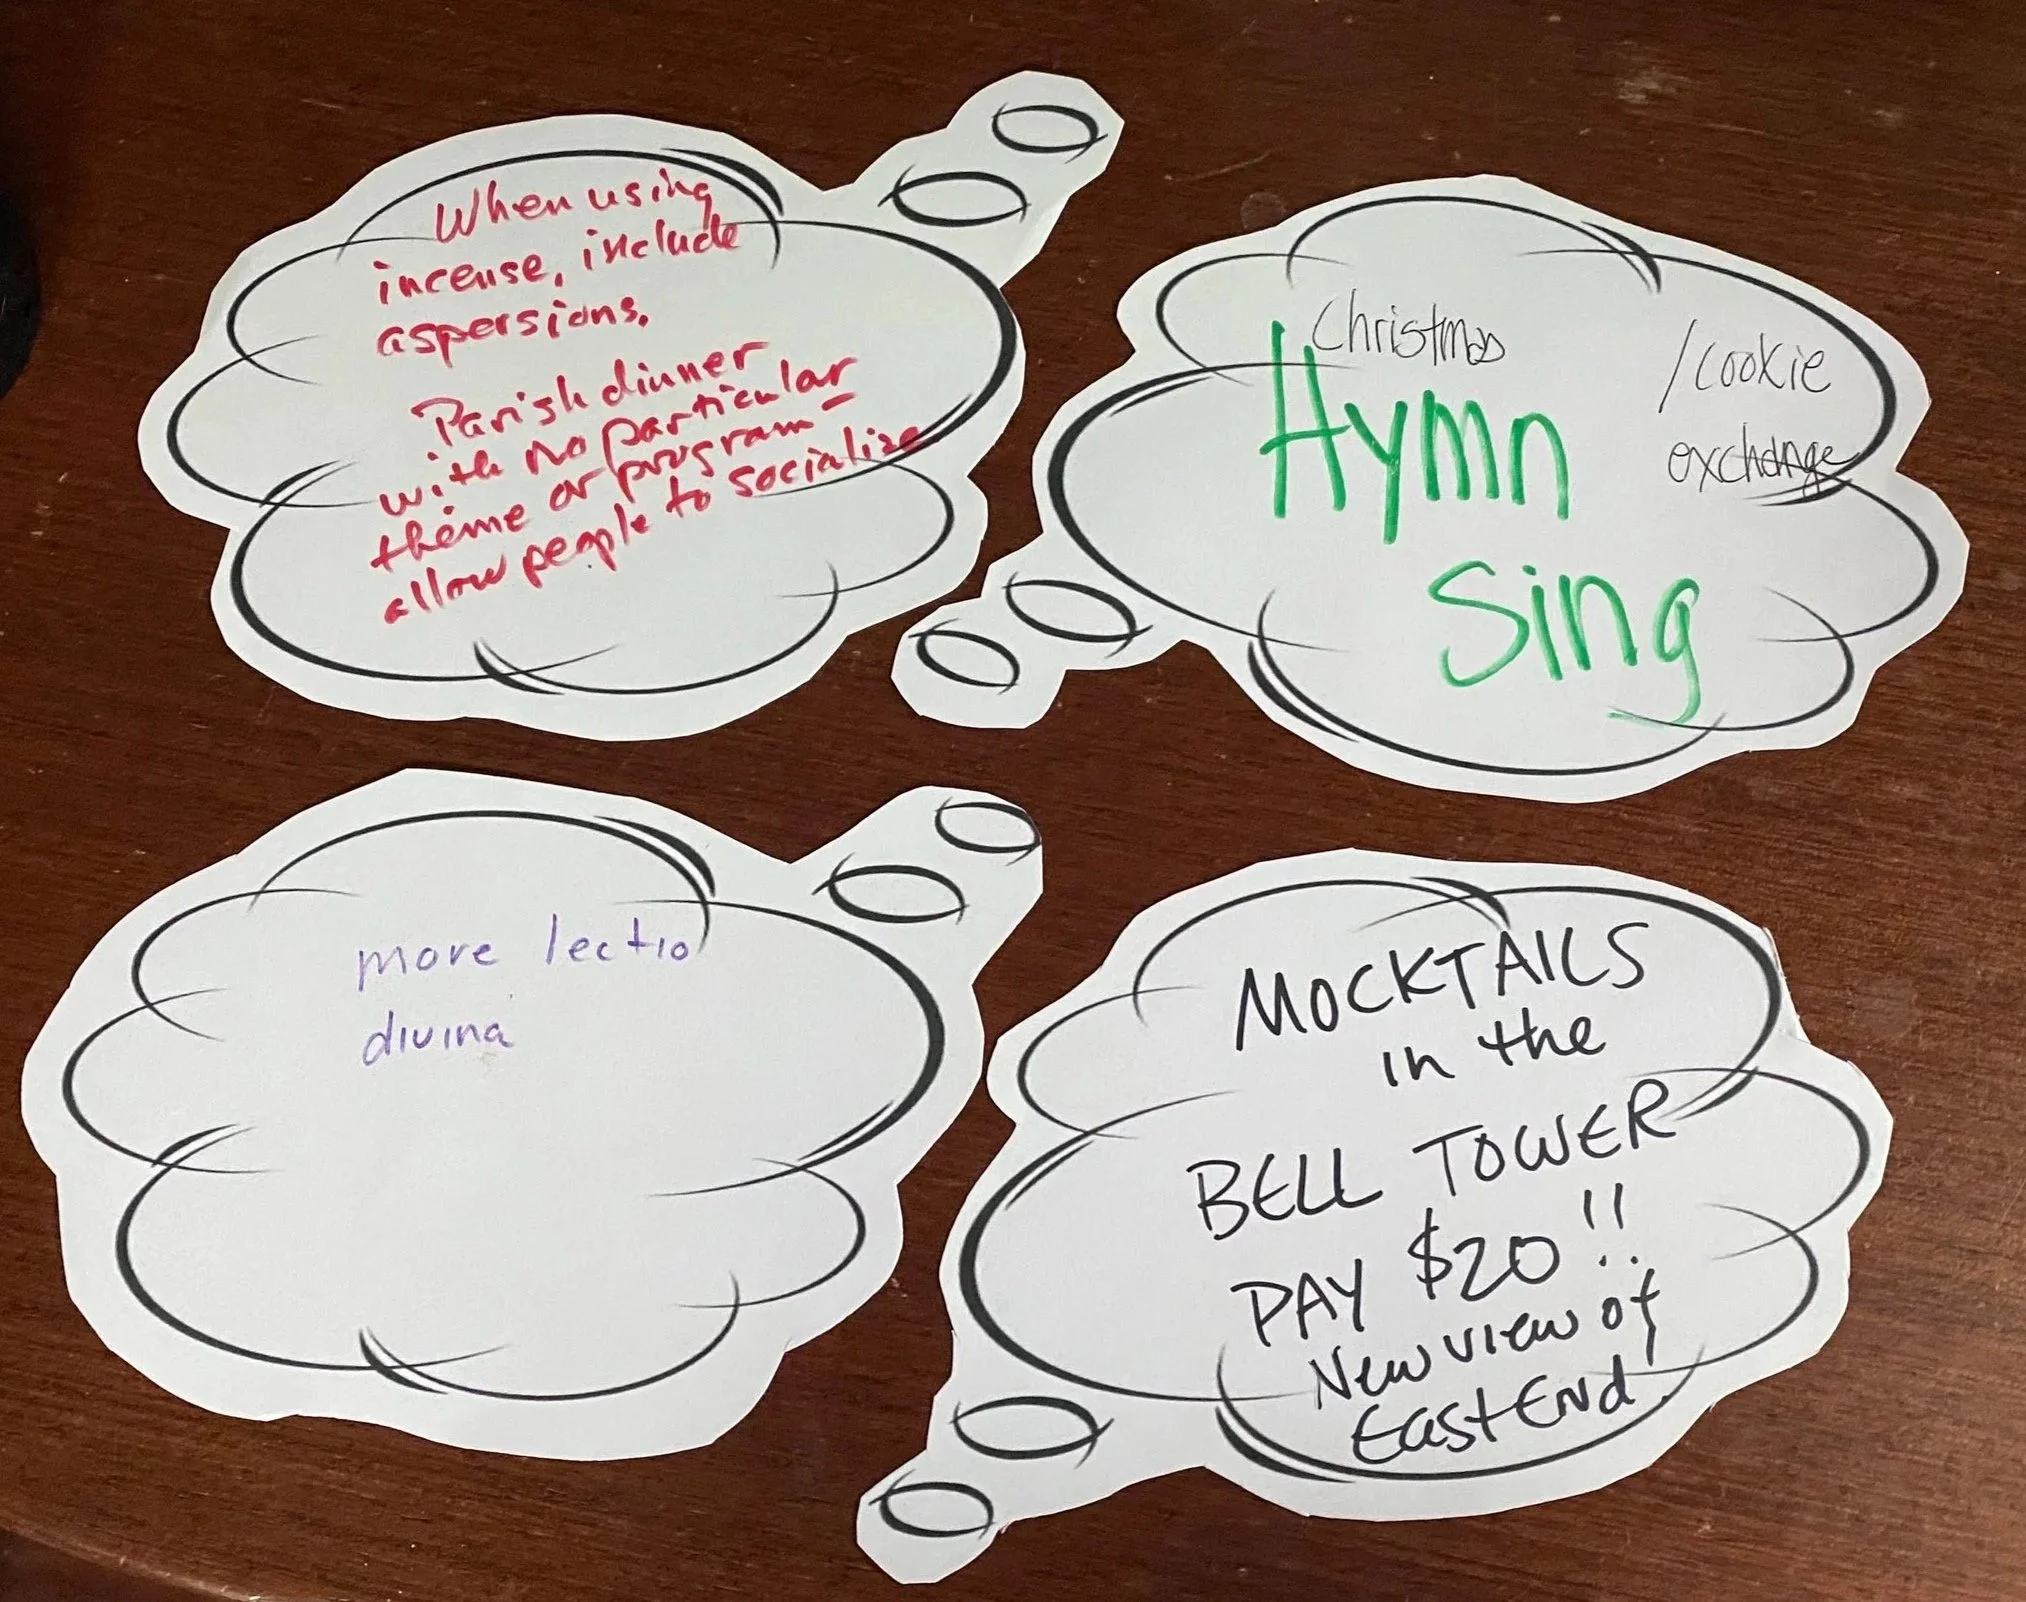 When using
incense, include
aspersions.
Parish dinner
with no particular
theme or program –
allow people to socialize
Christmas
Hymn
Sing
/cookie
exchange
more lectio
divina
MOCKTAILS
in the
BELL TOWER
PAY $20!!
New view of
East End!